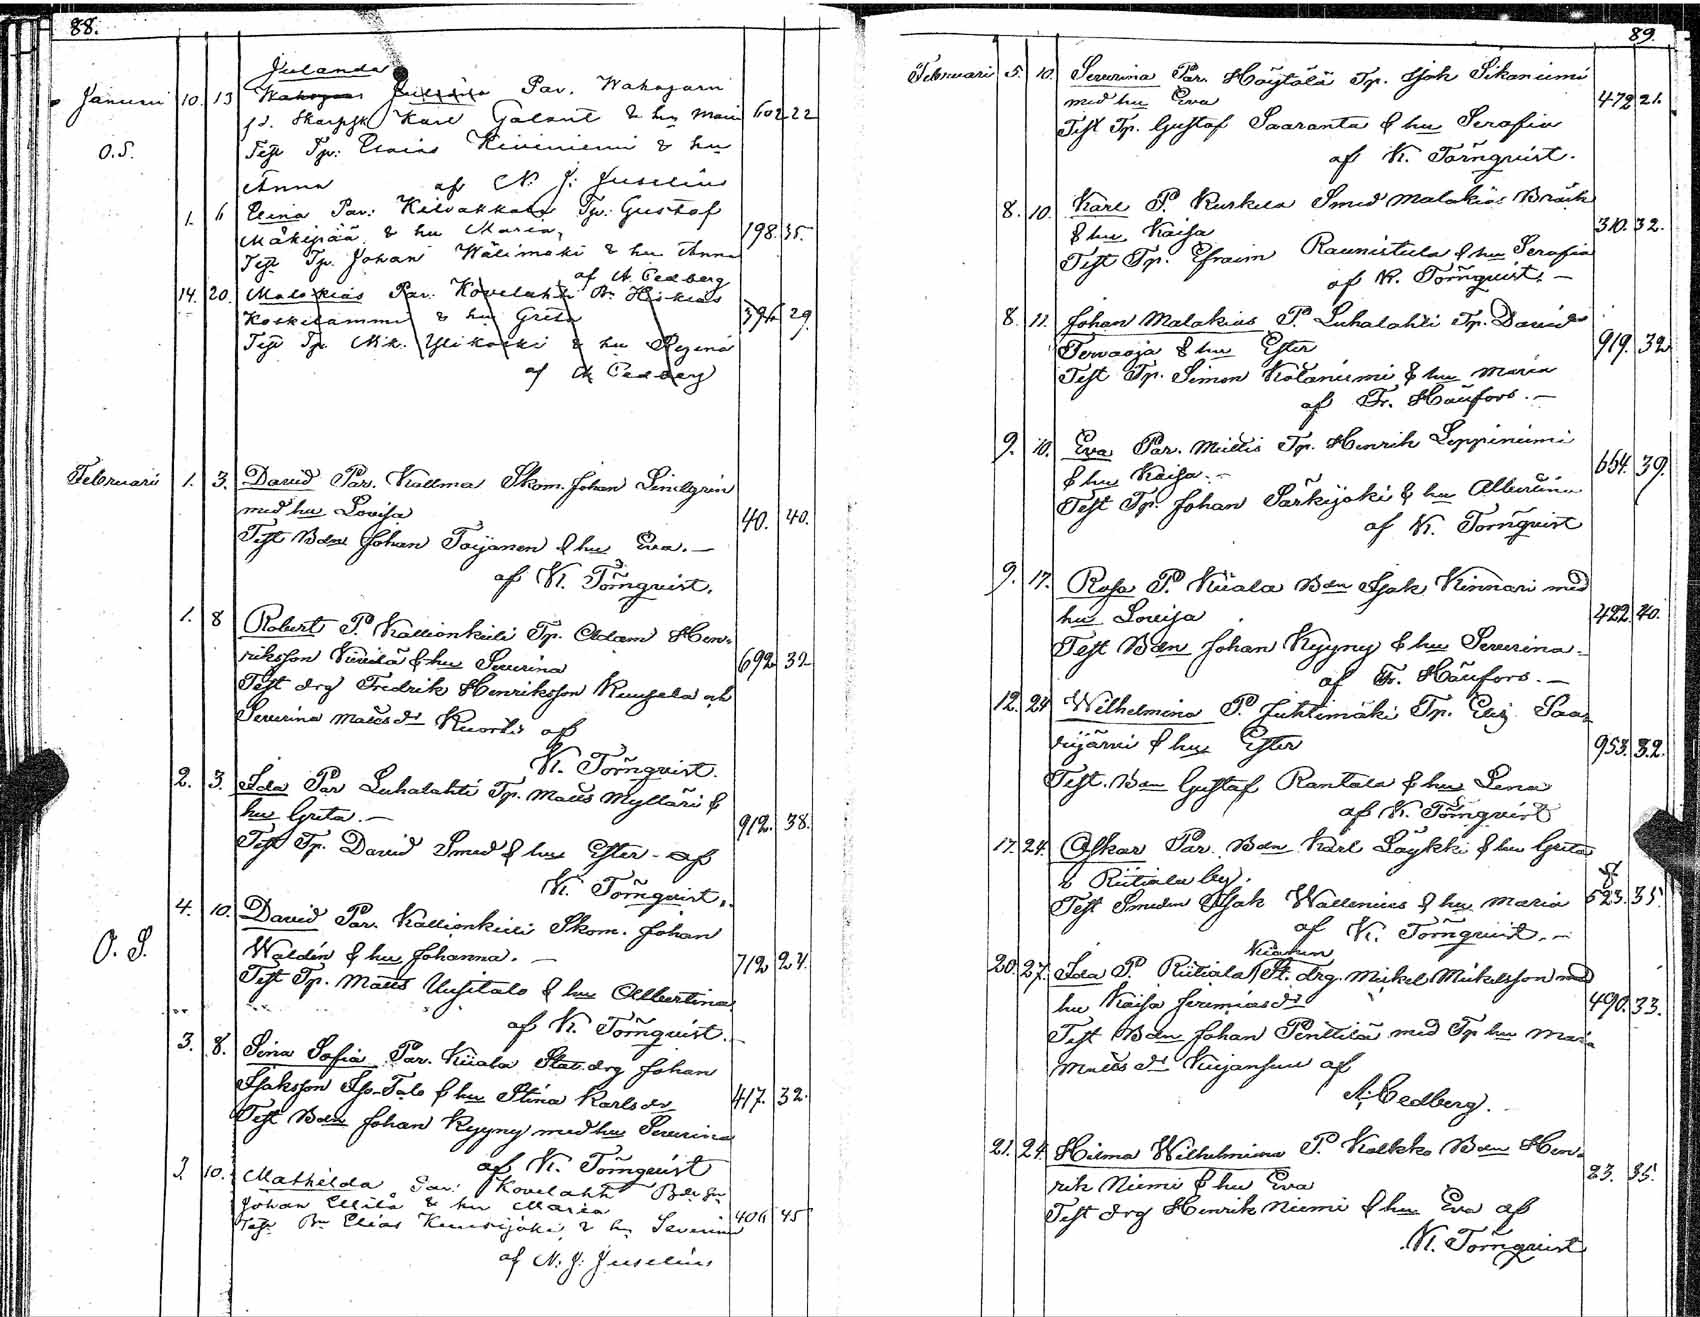 88.
Januari 10. 13
Julanda
Par. Wahojärvi
Karl Galant & hu Maria 602 22
O.S.
Test Tp: Elias Kiviniemi & hu
Anna af N. J. Juselius
1. 6 Elina Par: Kilvakkala Tp: Gustof
Mäkipää & hu Maria, 198. 35.
Test Tp. Johan Wälimäki & hu Anna
af A Cedberg
14. 20. Malakias Par: Kovelahti Bn Hiskias
Koskilammi & hu Greta 396 29
Test Tp Mik. Ylikoski & hu Regina
af A Cedberg
Februari 1. 3. David Par. Kallma Skom. Johan Lindgrén
med hu Lovisa 40. 40.
Test Bdn Johan Toijanen & hu Eva. —
af K. Törnqvist.
1. 8 Robert P. Kallionkieli Tp. Adam Hen-
riksson Kivelä & hu Severina 692 32
Test drg Fredrik Henriksson Kuusela och
Severina Mattsdr af
K. Törnqvist.
2. 3. Ida Par Luhalahti Tp. Matts Mylläri &
hu Greta. — 912. 38.
Test Tp. David Smed & hu Ester – af
K. Törnqvist.
4. 10. David Par. Kallionkieli Skom. Johan
O. S.
Waldén & hu Johanna. — 712 24.
Test Tp. Matts Uusitalo & hu Albertina
af K. Törnqvist. —
3. 8. Sina Sofia Par. Kiiala Stat.drg Johan
Isaksson Iso-Talo & hu Stina Karlsdr 417. 32.
Test Bdn Johan Kyyny med hu Severina
af K. Törnqvist
3. 10. Mathilda Par: Kovelaht
Johan Ellilä & hu Maria 406 45
Test Bn Elias & hu Severina
af N. J. Juselius
89.
Februari 5. 10. Severina Par. Höytölä Tp. Isak Sikaniemi
med hu Eva 472 21.
Test Tp. Gustaf Saaranta & hu Serafia
af K. Törnqvist.
8. 10. Karl P. Kurkela Smed Malakias Bräsk
& hu Kaisa 310. 32.
Test Tp. Efraim Raunistula & hu Serafia
af K. Törnqvist. —
8. 11. Johan Malakias P. Luhalahti Tp. David
Tervaoja & hu Ester 919. 32
Test Tp. Simon Kotaniemi & hu Maria
af Fr. Häufors. —
9. 10. Eva Par. Miettis Tp. Henrik Leppiniemi
& hu Kaisa. — 654. 39.
Test Tp. Johan Särkijoki & hu Albertina
af K. Törnqvist
9. 17. Rosa P. Kiiala Bdn Isak Kinnari med
hu Lovisa 422 40.
Test Bdn Johan Kyyny & hu Severina –
af Fr. Häufors. —
12. 24 Wilhelmina P. Juhtimäki Tp. Elis Saa-
rijärvi & hu Ester 953. 32.
Test. Bdn Gustaf Rantala & hu Lena
af K. Törnqvist
17. 24. Oskar Par. Bdn Karl Löykki & hu Greta
Riitiala by.
Test Smeden Isak Wallenius & hu Maria 523. 35.
af K. Törnqvist. —
20. 27. Ida P. Riitiala St. drg. Mickel Mickelsson med
hu Kaisa Jeremiasdr 490. 33.
Test Bdn Johan Penttilä med Tp hu Maria
Mattsdr Kuijansuu af
A. Cedberg.
21. 24. Hilma Wilhelmina P. Kalkko Bdn Hen-
rik Niemi & hu Eva 23. 35.
Test drg Henrik Niemi & hu Eva af
K. Törnqvist